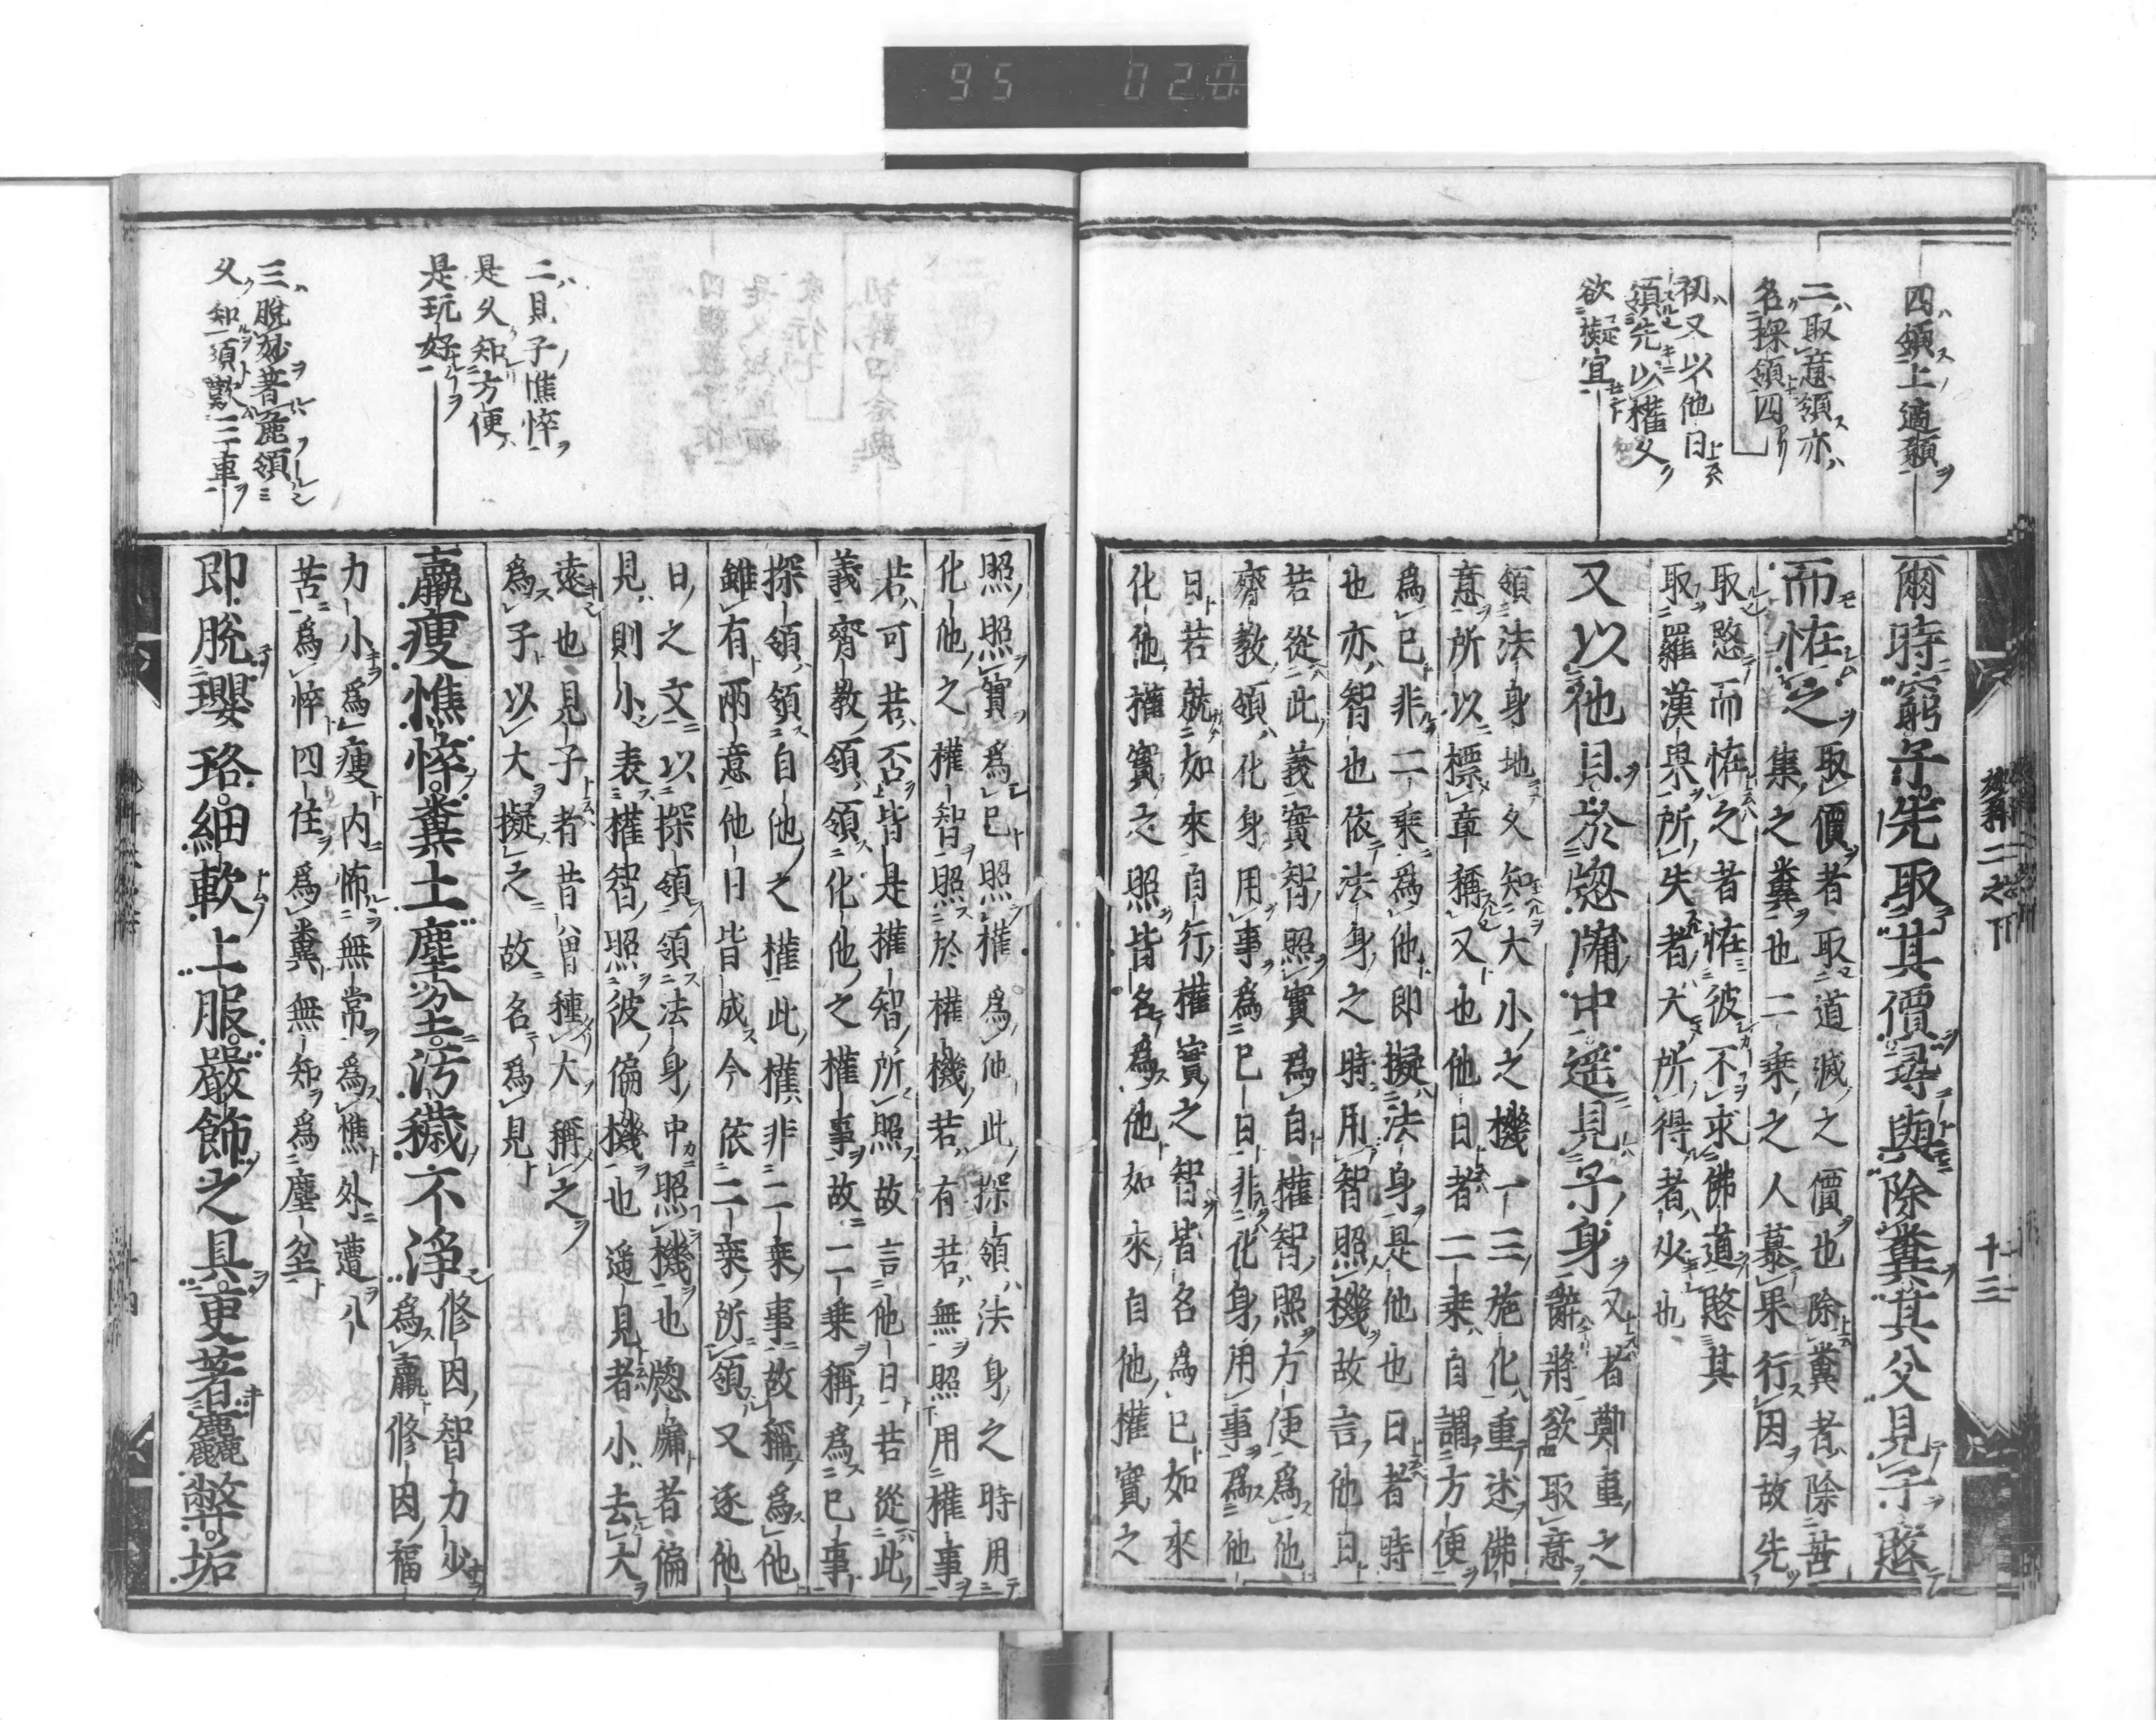 95 020
四領上適願
二取意領亦
名探領四
初又以他日
領先以權父
欲擬宜
法華二之下
十三
爾時窮子先取其價尋與除糞其父見子愍
而恠之取價者取道滅之價也除糞者除苦
集之糞也二乘之人慕果行因故先
取愍而恠之者恠彼不求佛道愍其
取羅漢果所失者大所得者少也
又以他日於窓牖中遥見子身又者鄭重之
辭將欲取意
領法身地父知大小之機一三施化重述佛
意所以標章稱又也他日者二乘自謂方便
爲已非二乘爲他即擬法身是他也日者時
也亦智也依法身之時用智照機故言他日
若從此義實智照實爲自權智照方便爲他
齊教領化身用事爲已日非化身用事爲他
日若就如來自行權實之智皆名爲已如來
化他權實之照皆名爲他如來自他權實之
照照實爲已照權爲他此探領法身之時用
化他之權智照於權機若有若無照用權事
若可若否皆是權智所照故言他日若從此
義齊教領領化他之權事故二乘稱爲已事
探領領自他之權此權非二乘事故稱爲他
雖有兩意他日皆成今依二乘所領又逐他
日之文以探領領法身中照機也窓牖者偏
見則小表權智照彼偏機也遥見者小去大
遠也見子者昔曾種大稱之
爲子以大擬之故名爲見
二見子憔悴
是父知方便
是玩好
羸瘦憔悴糞土塵坌汚穢不淨修因智力少
爲羸修因福
力小爲瘦内怖無常爲憔外遭八
苦爲悴四住爲糞無知爲塵坌
三脫妙著麁領
父知須歎三車
即脫瓔珞細軟上服嚴飾之具更著麤弊垢